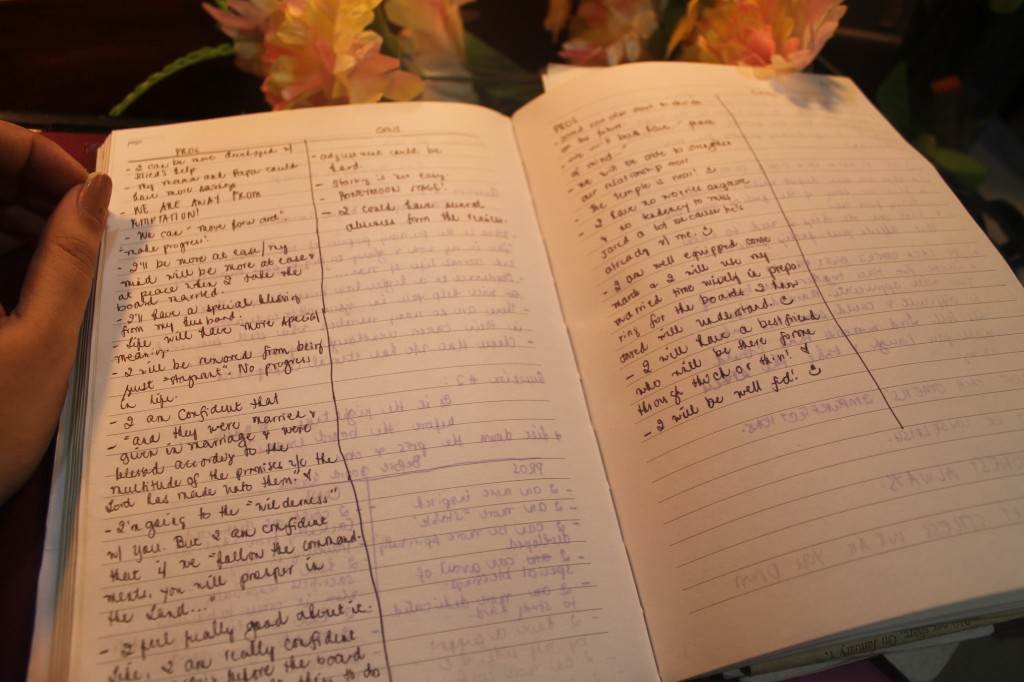 PROS
CONS
- I can be more developed w/
Jared's help
- My mama and Papa could
have more savings
- WE ARE AWAY FROM
TEMPTATION!
- We can "move forward"
"make progress"
- I'll be more at ease/my
mind will be more at ease &
at peace when I take the
board married.
- I'll have a special blessing
from my husband.
- Life will have more special
meaning.
- I will be removed from being
just "stagnant". No progress
in life.
- I am confident that
- "and they were married &
given in marriage & were
blessed according to the
multitude of the promises w/c the
Lord has made unto them."
- I'm going to the "wilderness"
w/ you. But I am confident
that if we "follow the command-
ments, you will prosper in
the Land..."
- I feel really good about it.
Like, I am really confident
before the board
to do
- adjustment could be
hard.
- Starting is not easy
- HONEYMOON STAGE!
- I could have several
absences from the review.
PROS
our future
mind."
- We will be able to strengthen
our relationship more
The temple is near! :)
- I have no worries anymore
& no tendency to miss
Jared a lot because he's
already w/ me. :)
- I am well equipped
I will use my
married time wisely in prepa-
ring for the boards I know
Jared will understand. :)
- I will have a bestfriend
who will be there for me
through thick or thin!
- I will be well fed! :)